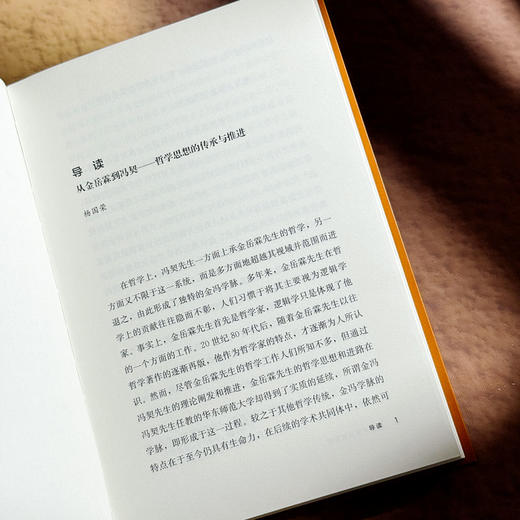 导 读
从金岳霖到冯契——哲学思想的传承与推进
杨国荣
在哲学上，冯契先生一方面上承金岳霖先生的哲学，另一
方面又不限于这一系统，而是多方面地超越其视域并范围而进
退之，由此形成了独特的金冯学脉。多年来，金岳霖先生在哲
学上的贡献往往隐而不彰，人们习惯于将其主要视为逻辑学
家。事实上，金岳霖先生首先是哲学家，逻辑学只是体现了他
的一个方面的工作。20 世纪 80 年代后，随着金岳霖先生以往
哲学著作的逐渐再版，他作为哲学家的特点，才逐渐为人所认
识。然而，尽管金岳霖先生的哲学工作人们所知不多，但通过
冯契先生的理论阐发和推进，金岳霖先生的哲学思想和进路在
冯契先生任教的华东师范大学却得到了实质的延续，所谓金冯
学脉，即形成于这一过程。较之于其他哲学传统，金冯学脉的
特点在于至今仍具有生命力，在后续的学术共同体中，依然可
导读 1